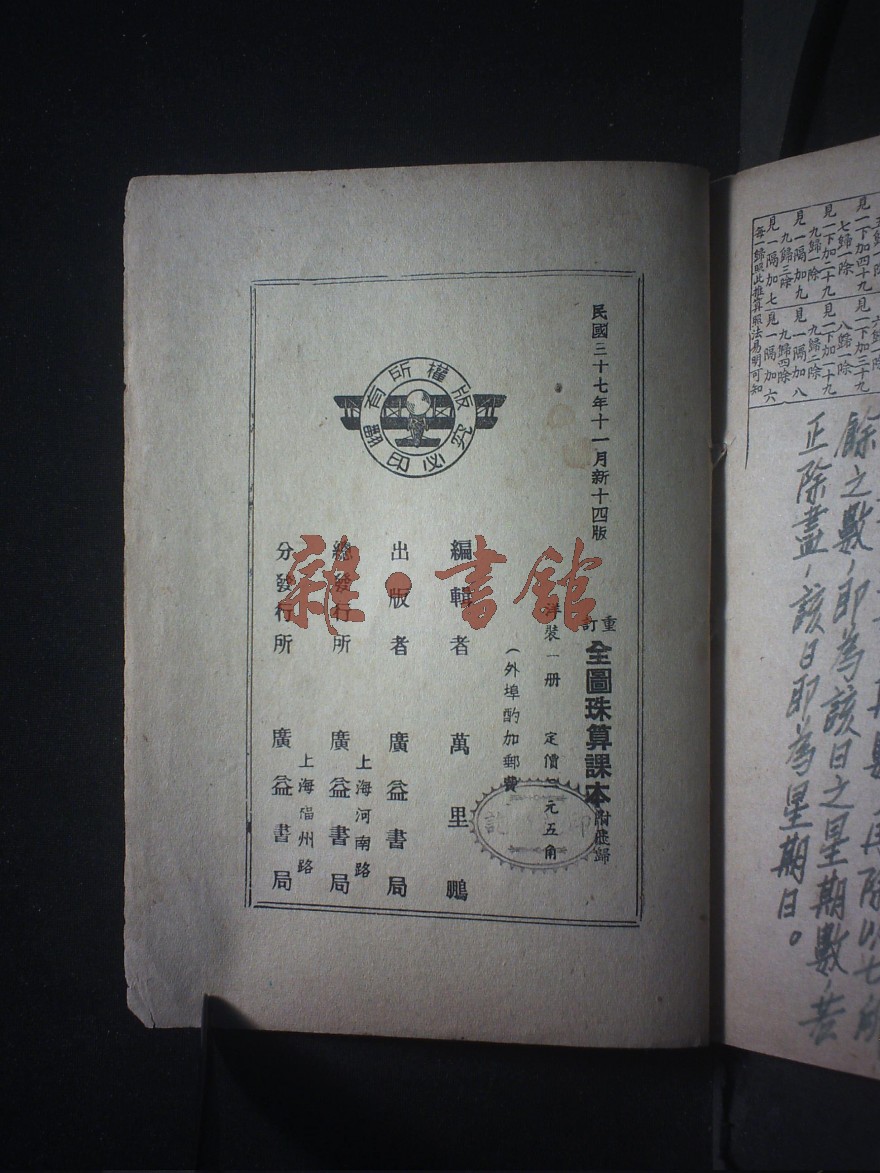 見一下加四十九
七歸一除
見一下加二十九
九歸一除
見一隔加九
九歸三除
見一隔加七
每一歸照此推算照法易明可知
六歸一除
見一下加三十九
八歸一除
見一下加一十九
九歸二除
見一隔加八
九歸四除
見一隔加六
餘之數，即為該日之星期數，若
正除盡，該日即為星期日。
民國三十七年十一月新十四版
重訂
全圖珠算課本
附飛歸
洋裝一册
定價
元五角
（外埠酌加郵費
版權所有
翻印必究
編輯者 萬里鵬
出版者 廣益書局
上海河南路
總發行所 廣益書局
上海福州路
分發行所 廣益書局
雜·書館